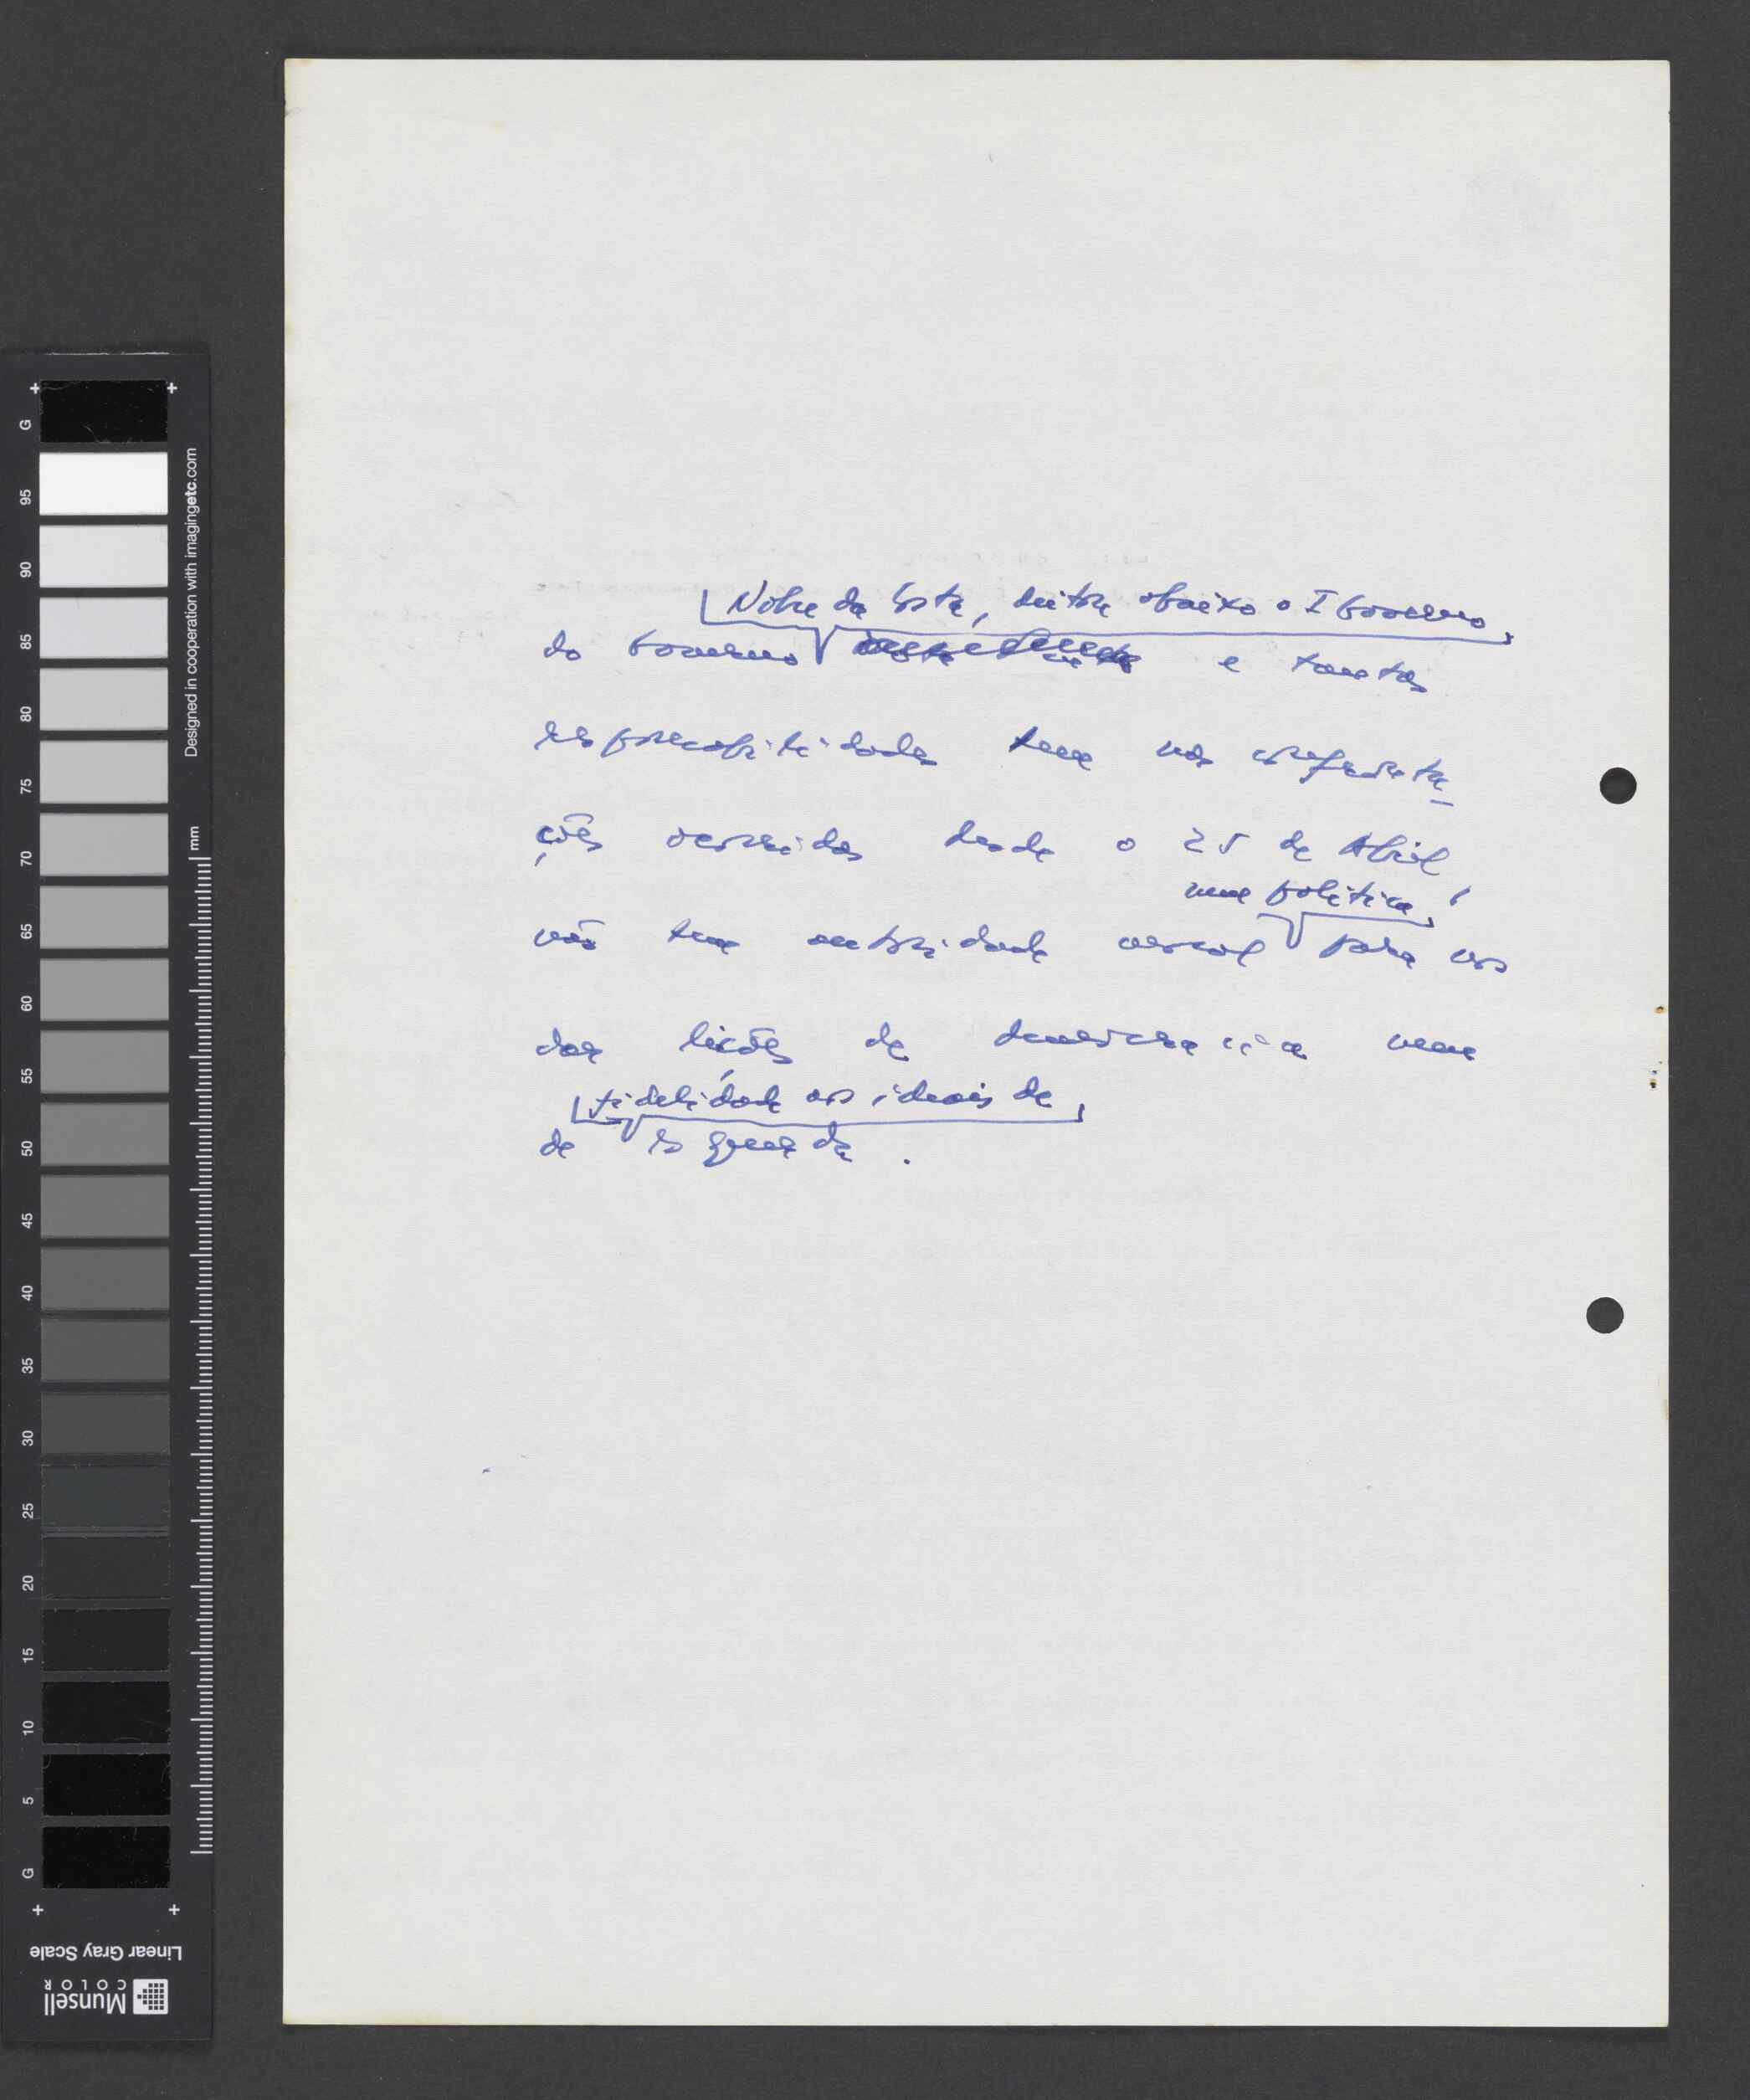 Nobre da Costa, deitar abaixo o I Governo,
do Governo e tantas
responsabilidades tem nas
ções ocorridas desde o 25 de Abril,
nem política,
não tem autoridade moral para nos
dar lições de democracia nem
fidelidade aos ideais de
de esquerda.
G 95 90 85 80 75 70 65 60 55 50 45 40 35 30 25 20 15 10 5 G
Designed in cooperation with imagingetc.com
mm
Linear Gray Scale
Munsell
COLOR